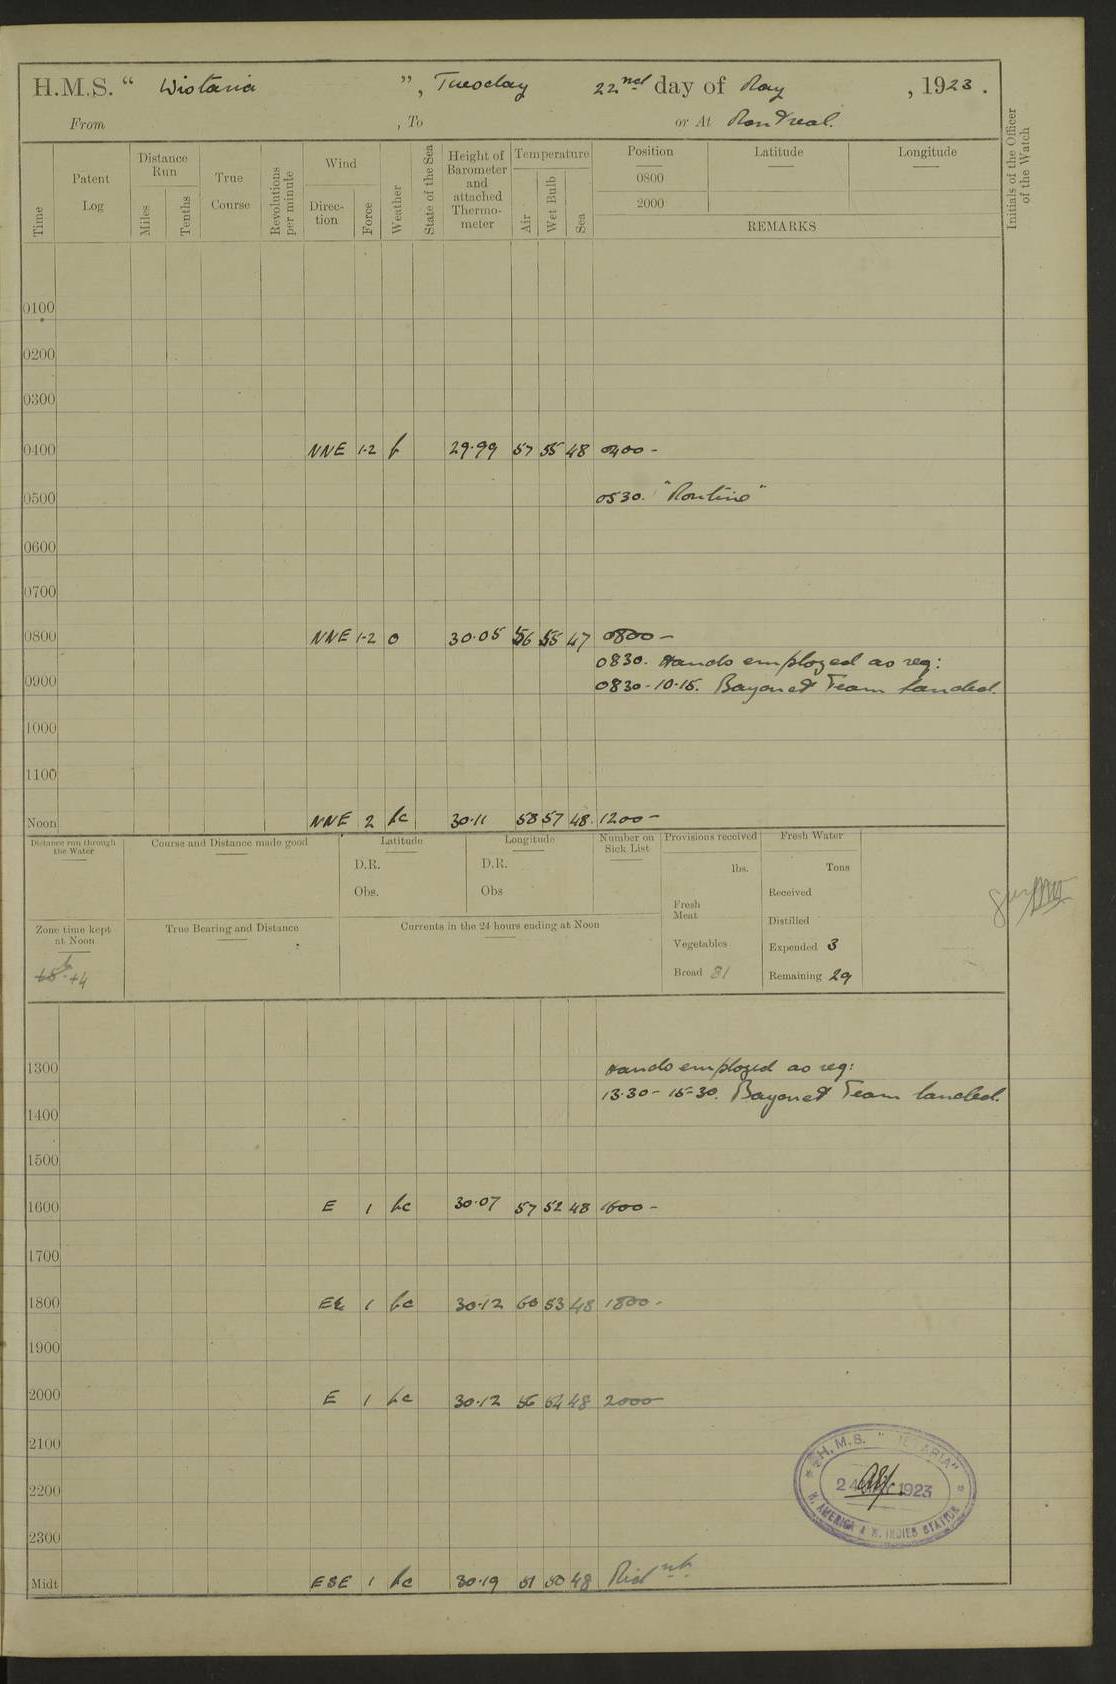 H.M.S. “ Wistaria ”, Tuesday 22nd day of May , 1923.
From , To or At Montreal.
Time Patent Log Distance Run Miles Tenths True Course Revolutions per minute Wind Direction Force Weather State of the Sea Height of Barometer and attached Thermometer Temperature Air Wet Bulb Sea Position 0800 2000 Latitude Longitude REMARKS Initials of the Officer of the Watch
0100
0200
0300
0400 NNE 1-2 b 29.99 57 55 48 0400 -
0500 0530. "Routine"
0600
0700
0800 NNE 1-2 o 30.05 56 55 47 0800 -
0830. Hands employed as req:
0900 0830-10.15. Bayonet Team landed.
1000
1100
Noon NNE 2 bc 30.11 58 57 48 1200 -
Distance run through the Water Course and Distance made good Latitude Longitude Number on Sick List Provisions received Fresh Water
D.R. D.R. lbs. Tons
Obs. Obs Received
Fresh Meat
Distilled
Zone time kept at Noon True Bearing and Distance Currents in the 24 hours ending at Noon
Vegetables Expended 3
+4 Bread 81 Remaining 29
1300 Hands employed as req:
13.30 - 15-30. Bayonet Team landed.
1400
1500
1600 E 1 bc 30.07 57 52 48 1600 -
1700
1800 1 bc 30.12 60 53 48 1800 -
1900
2000 E 1 bc 30.12 56 52 48 2000
2100
H.M.S. "WISTARIA"
2200 24 1923
N. AMERICA & W. INDIES STATION
2300
Midt ESE 1 bc 30.19 51 50 48 Mid nt.